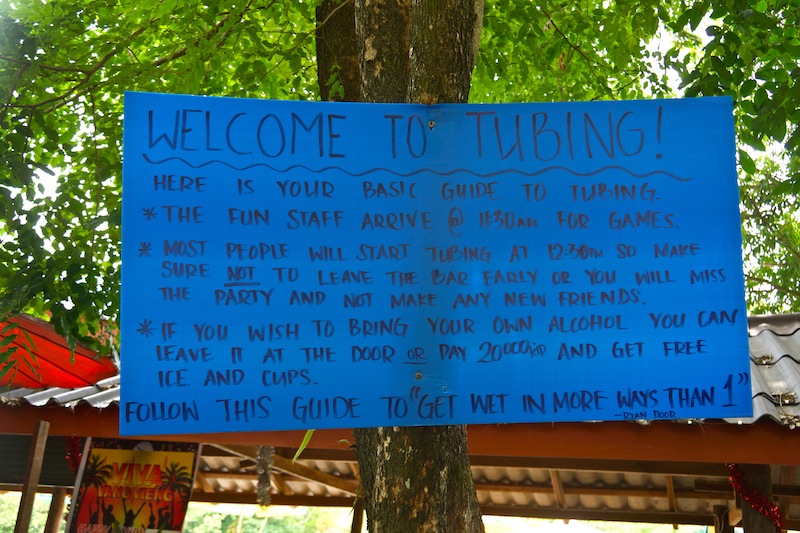 WELCOME TO TUBING!
HERE IS YOUR BASIC GUIDE TO TUBING.
* THE FUN STAFF ARRIVE @ 11:30AM FOR GAMES.
* MOST PEOPLE WILL START TUBING AT 12:30PM SO MAKE
SURE NOT TO LEAVE THE BAR EARLY OR YOU WILL MISS
THE PARTY AND NOT MAKE ANY NEW FRIENDS.
* IF YOU WISH TO BRING YOUR OWN ALCOHOL YOU CAN
LEAVE IT AT THE DOOR OR PAY 20000KIP AND GET FREE
ICE AND CUPS.
FOLLOW THIS GUIDE TO "GET WET IN MORE WAYS THAN 1"
-RYAN DOOR
VIVA
VANG VIENG